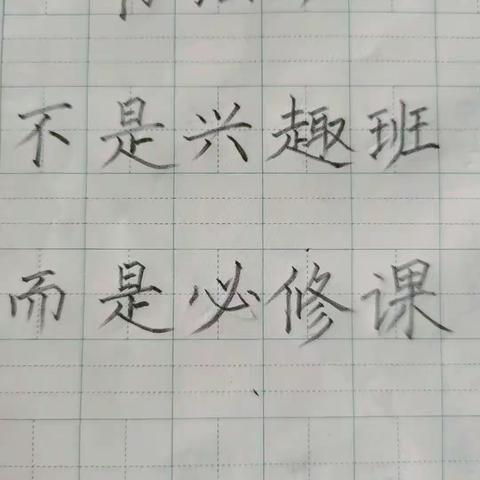 不是兴趣班
而是必修课